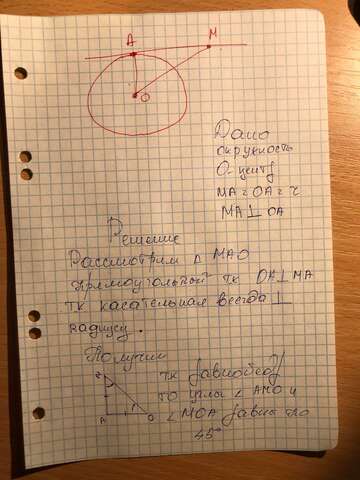 A M
O
Дано
окружность
О-центр
MA = OA = r
MA ⊥ OA
Решение
Рассмотрим Δ MAO
прямоугольный тк OA ⊥ MA
тк касательная всегда ⊥
радиусу.
Получим
тк равнобед/
то углы ∠ AMO и
A O
∠ MOA равны по
45°